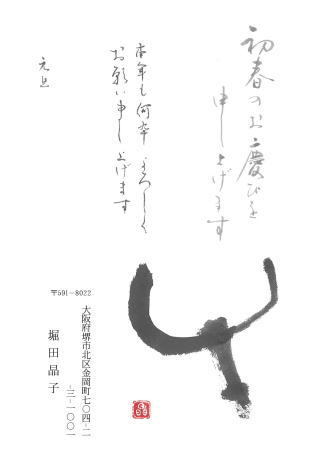 初春のお慶びを
申し上げます
本年も何卒よろしく
お願い申し上げます
元旦
〒591-8022
大阪府堺市北区金岡町七〇四-二
-三-一〇〇一
堀田晶子
晶